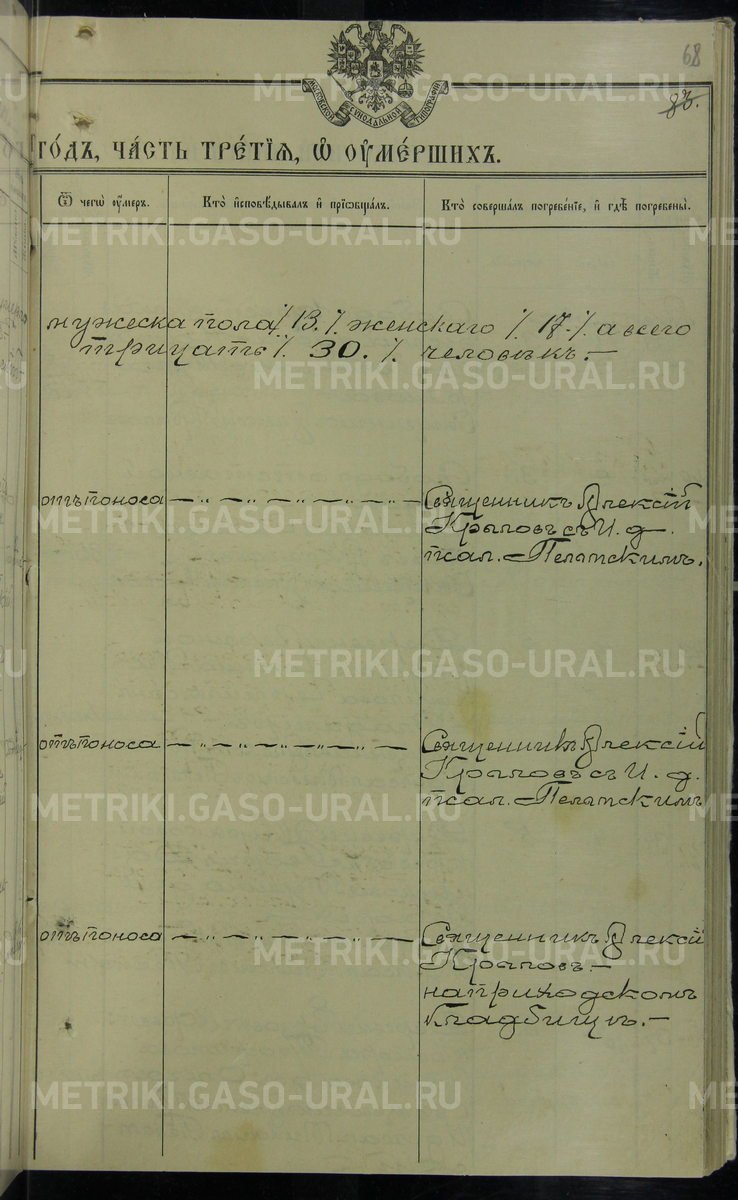 68
83.
МОСКОВСКОЙ СѴНОДАЛЬНОЙ ТИПОГРАФІИ
го́дъ, ча́сть тре́тїѧ, ѡ҆ ᲂу҆ме́ршихъ.
Ѿ чегѡ̀ ᲂу҆́меръ.
Кто̀ и҆сповѣ́дывалъ и҆ прїѡбща́лъ.
Кто̀ соверша́лъ погребе́нїе, и҆ гдѣ̀ погребены̀.
мужеска пола ٪ 13. ٪ женскаго ٪ 17. ٪ а всего
тридцать ٪ 30. ٪ человѣкъ. —
отъ поноса — „ — „ — „ — „ — „ —
Священникъ Алексій
Крыловъ съ И. д.
псал. Пелатскимъ.
отъ поноса — „ — „ — „ — „ — „ —
Священникъ Алексій
Крыловъ съ И. д.
псал. Пелатскимъ
отъ поноса — „ — „ — „ — „ — „ —
Священникъ Алексій
Крыловъ. —
на приходскомъ
кладбищѣ. —
METRIKI.GASO-URAL.RU